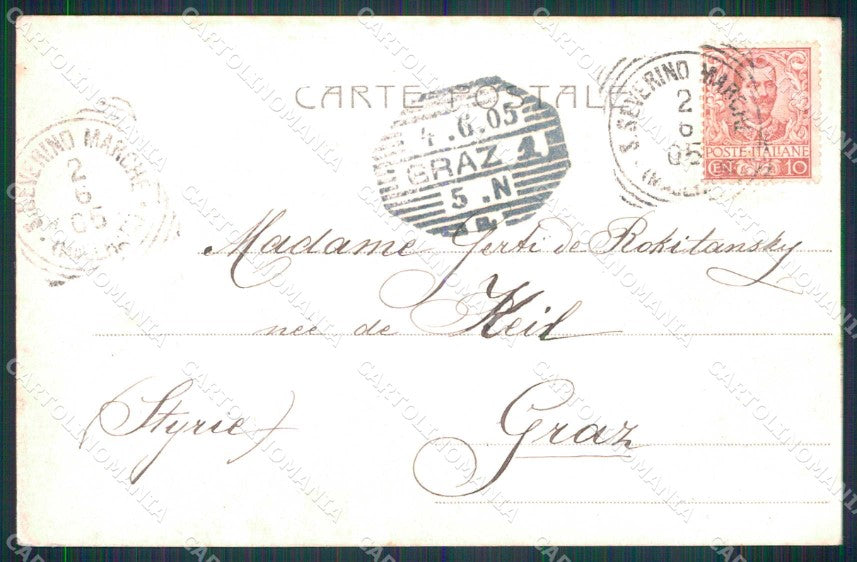 CARTE POSTALE
4.6.05
GRAZ 1
5.N
S. SEVERINO MARCHE
2
6
05
S. SEVERINO MARCHE
2
6
05
POSTE ITALIANE
CENT. 10
Madame Gerti de Rokitansky
née de Keil
(Styrie)
Graz
CARTOLINOMANIA